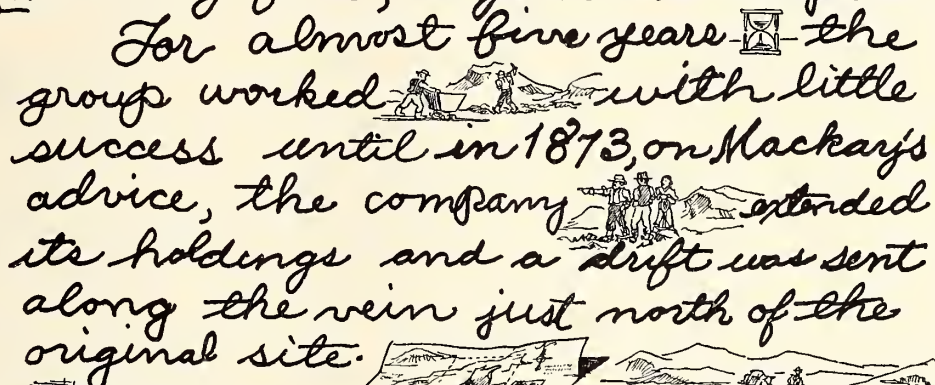 For almost five years the
group worked with little
success until in 1873, on Mackay's
advice, the company extended
its holdings and a drift was sent
along the vein just north of the
original site.